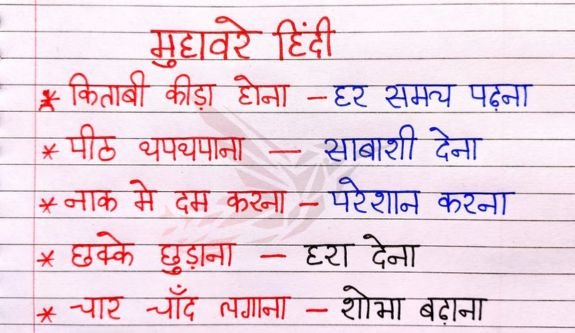 मुहावरे हिंदी
* किताबी कीड़ा होना – हर समय पढ़ना
* पीठ थपथपाना – साबाशी देना
* नाक मे दम करना – परेशान करना
* छक्के छुड़ाना – हरा देना
* चार चाँद लगाना – शोभा बढ़ाना